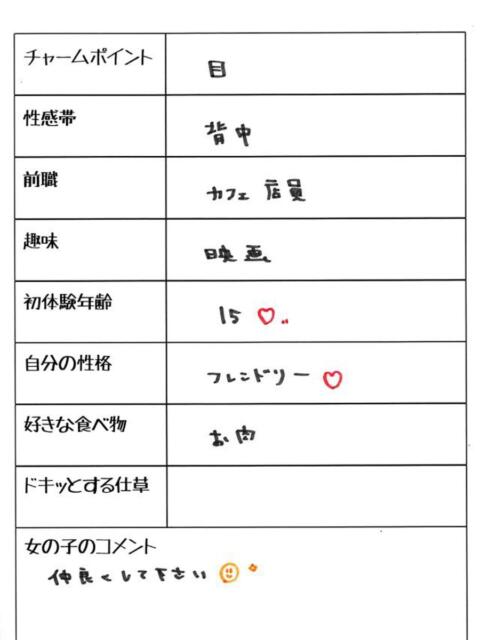 チャームポイント 目
性感帯 背中
前職 カフェ店員
趣味 映画
初体験年齢 15♡
自分の性格 フレンドリー♡
好きな食べ物 お肉
ドキッとする仕草
女の子のコメント
仲良くして下さい